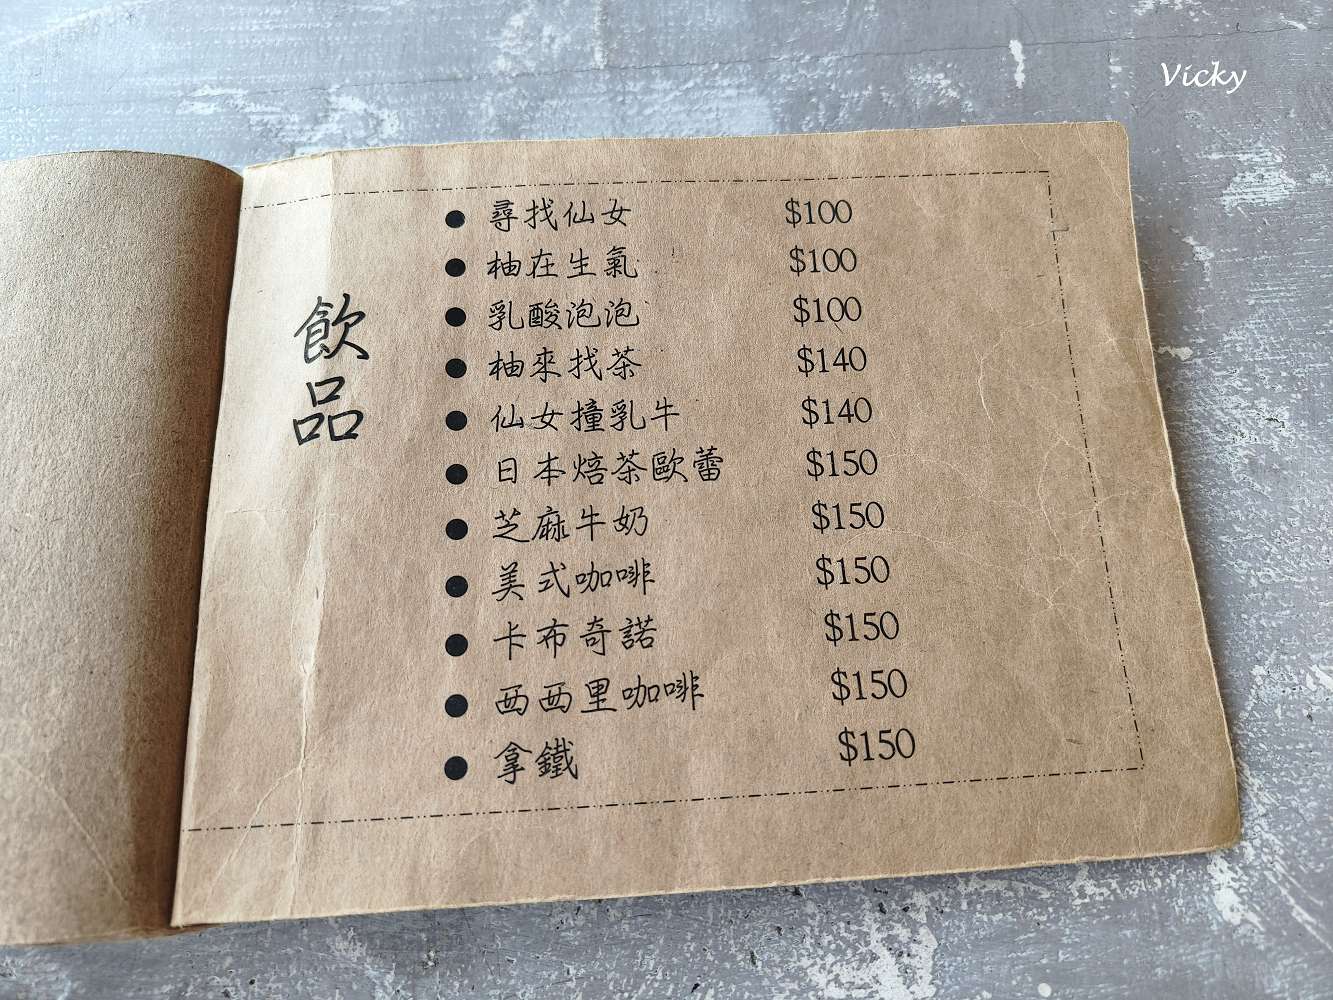 Vicky
飲品
● 尋找仙女 $100
● 柚在生氣 $100
● 乳酸泡泡 $100
● 柚來找茶 $140
● 仙女撞乳牛 $140
● 日本焙茶歐蕾 $150
● 芝麻牛奶 $150
● 美式咖啡 $150
● 卡布奇諾 $150
● 西西里咖啡 $150
● 拿鐵 $150